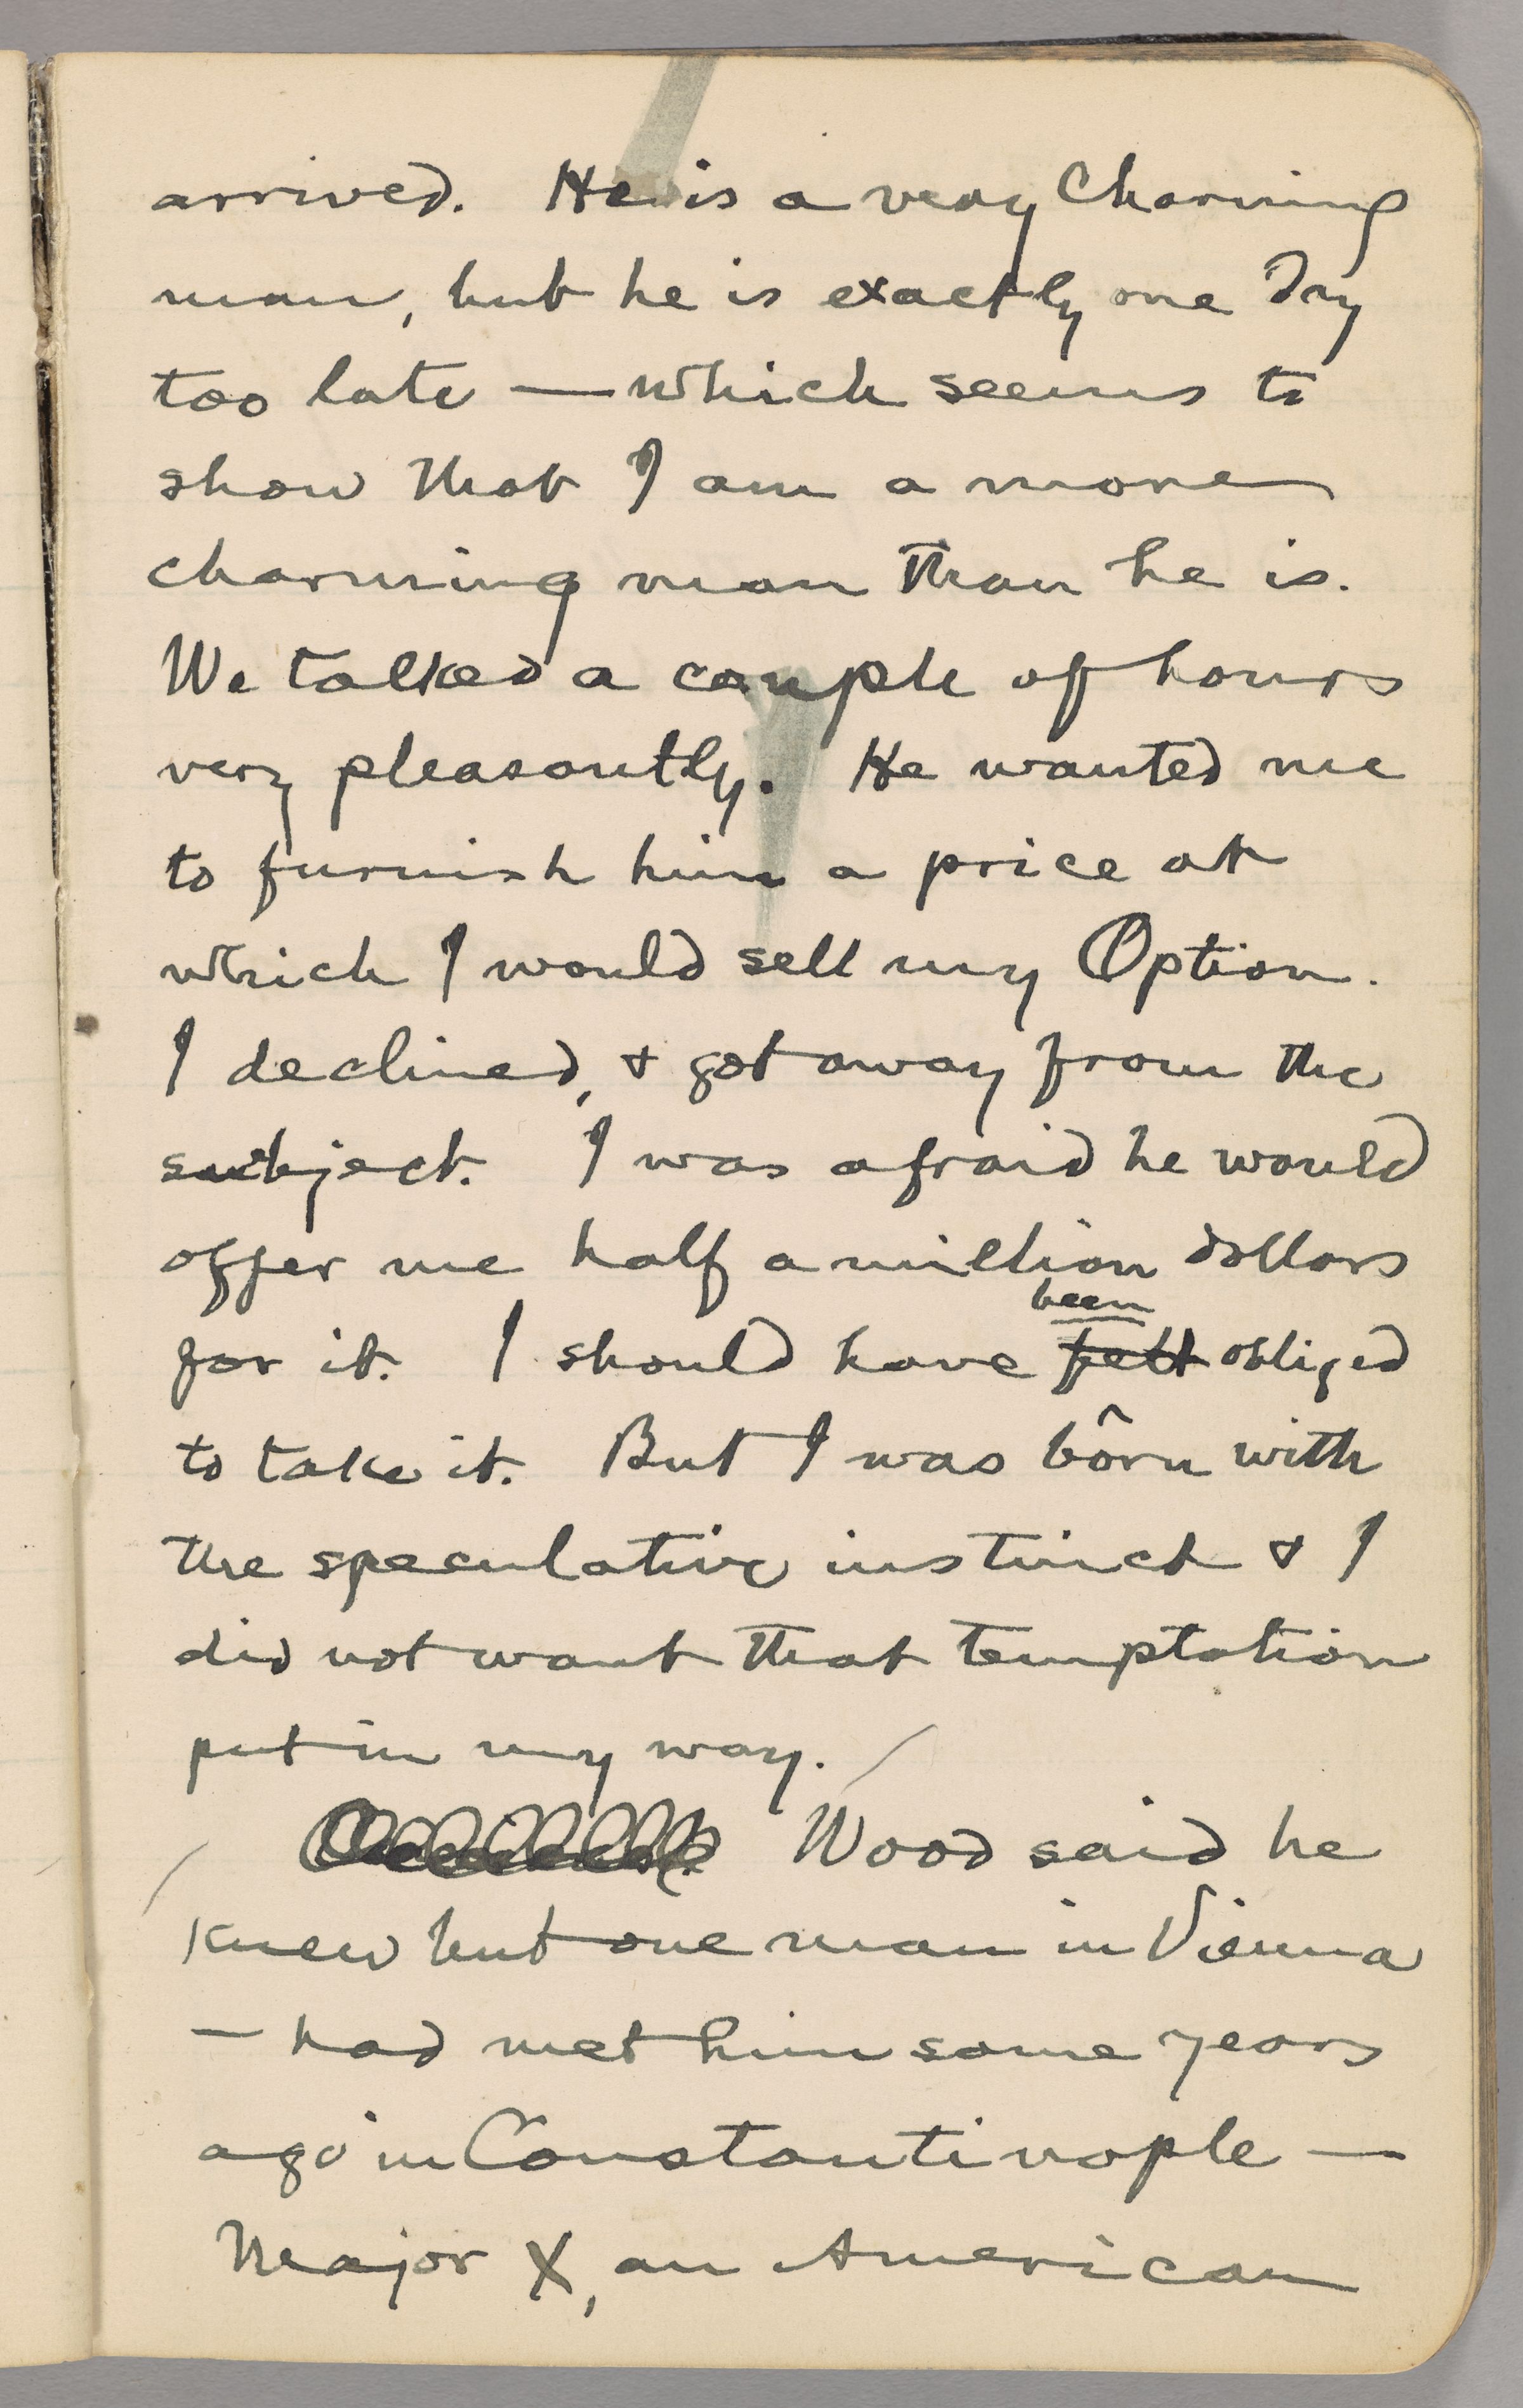 arrived. He is a very charming
man, but he is exactly one day
too late — which seems to
show that I am a more
charming man than he is.
We talked a couple of hours
very pleasantly. He wanted me
to furnish him a price at
which I would sell my Option.
I declined, & got away from the
subject. I was afraid he would
offer me half a million dollars
been
for it. I should have felt obliged
to take it. But I was born with
the speculative instinct & I
did not want that temptation
put in my way. /
/ Wood said he
knew but one man in Vienna
— had met him some years
ago in Constantinople —
Major X, an American